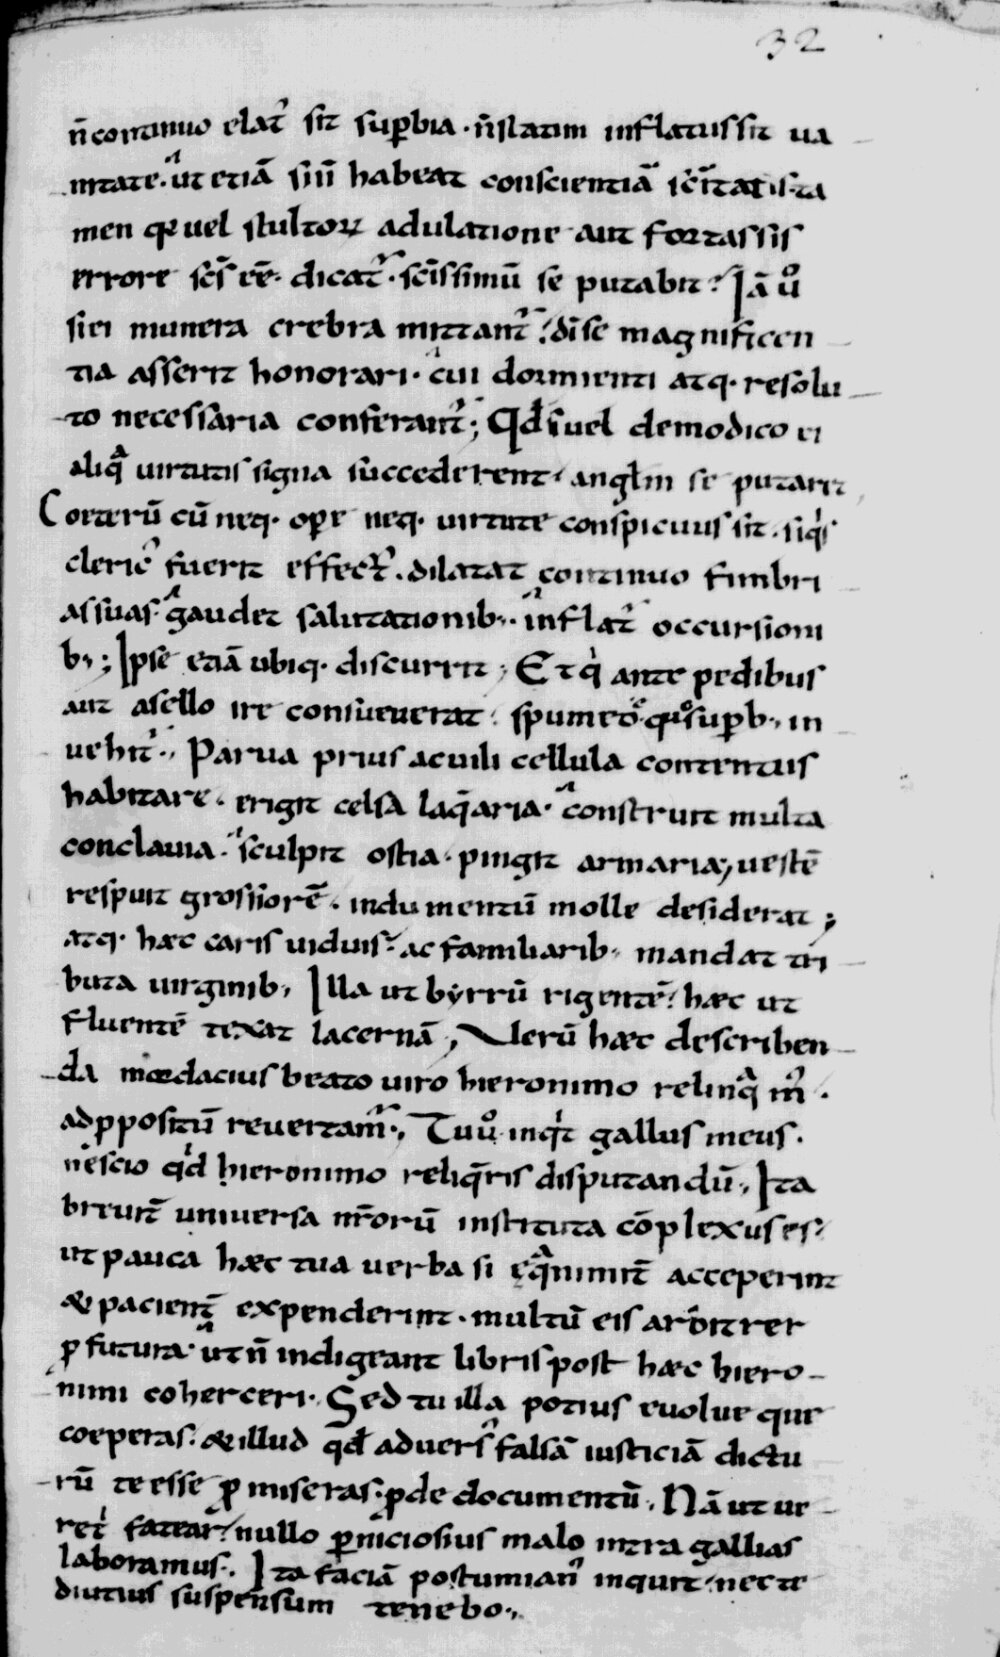 32
n̄ continuo elat᷒ sit sup̄bia · n̄ statim inflatus sit ua
nitate · ut etiā si n̄ habeat conscientiā sc̄itatis · ta
men qui uel stultoꝝ adulatione aut fortassis
errore sc̄s eē · dicat᷒ · sc̄issimū se putabit ? Iā ů
si ei munera crebra mittant᷒ · di se magnificen
tia asserit honorari · cui dormienti atq · resolu
to necessaria conferant᷒ ; Qd̄ si uel de modico ei
aliqᵃ uirtutis signa succederent · angl̄m se putaret
Coeterū cū neq · ope neq · uirtute conspicuus sit · siqⁱs
cleric᷒ fuerit effect᷒ · dilatat continuo fimbri
as suas · gaudet salutationib · inflat᷒ occursioni
b ; Ipse etiā ubiq · discurrit ; Et qⁱ ante pedibus
aut asello ire consueuerat · spumeo · quo sup̄b · in
uehit᷒ · Parua prius ac uili cellula contentus
habitare · erigit celsa laq̄aria · construit multa
conclauia · sculpit ostia · pingit armaria, uestē
respuit grossiorē · indumentū molle desiderat ;
atq · haec caris uiduis · ac familiarib · mandat tri
buta uirginib · Illa ut byrrū rigentē · haec ut
fluentē texat lacernā, Uerū haec describen
da mordacius beato uiro hieronimo relinqᵃm᷒ ·
ad p̄positū reuertam᷒ · Tu ů inqⁱt gallus meus ·
nescio qⁱd hieronimo reliq̄ris disputandū · Ita
breuit̄ uniuersa nr̄orū instituta cōplexus es ·
ut pauca haec tua uerba si ęqᵃnimit̄ acceperint
& pacient̄ expenderint · multū eis arbitrer
p futura · ut n̄ indigeant libris post haec hiero
nimi coherceri · Sed tu illa potius euolue que
coeperas · & illud qd̄ aduers᷒ falsā iusticiā dictu
rū te esse promiseras · prode documentū · Nā ut ue
ret᷒ fatear · nullo p̄niciosius malo intra gallias
laboramus · Ita faciā postumian᷒ inquit · nec te
diutius suspensum tenebo ·